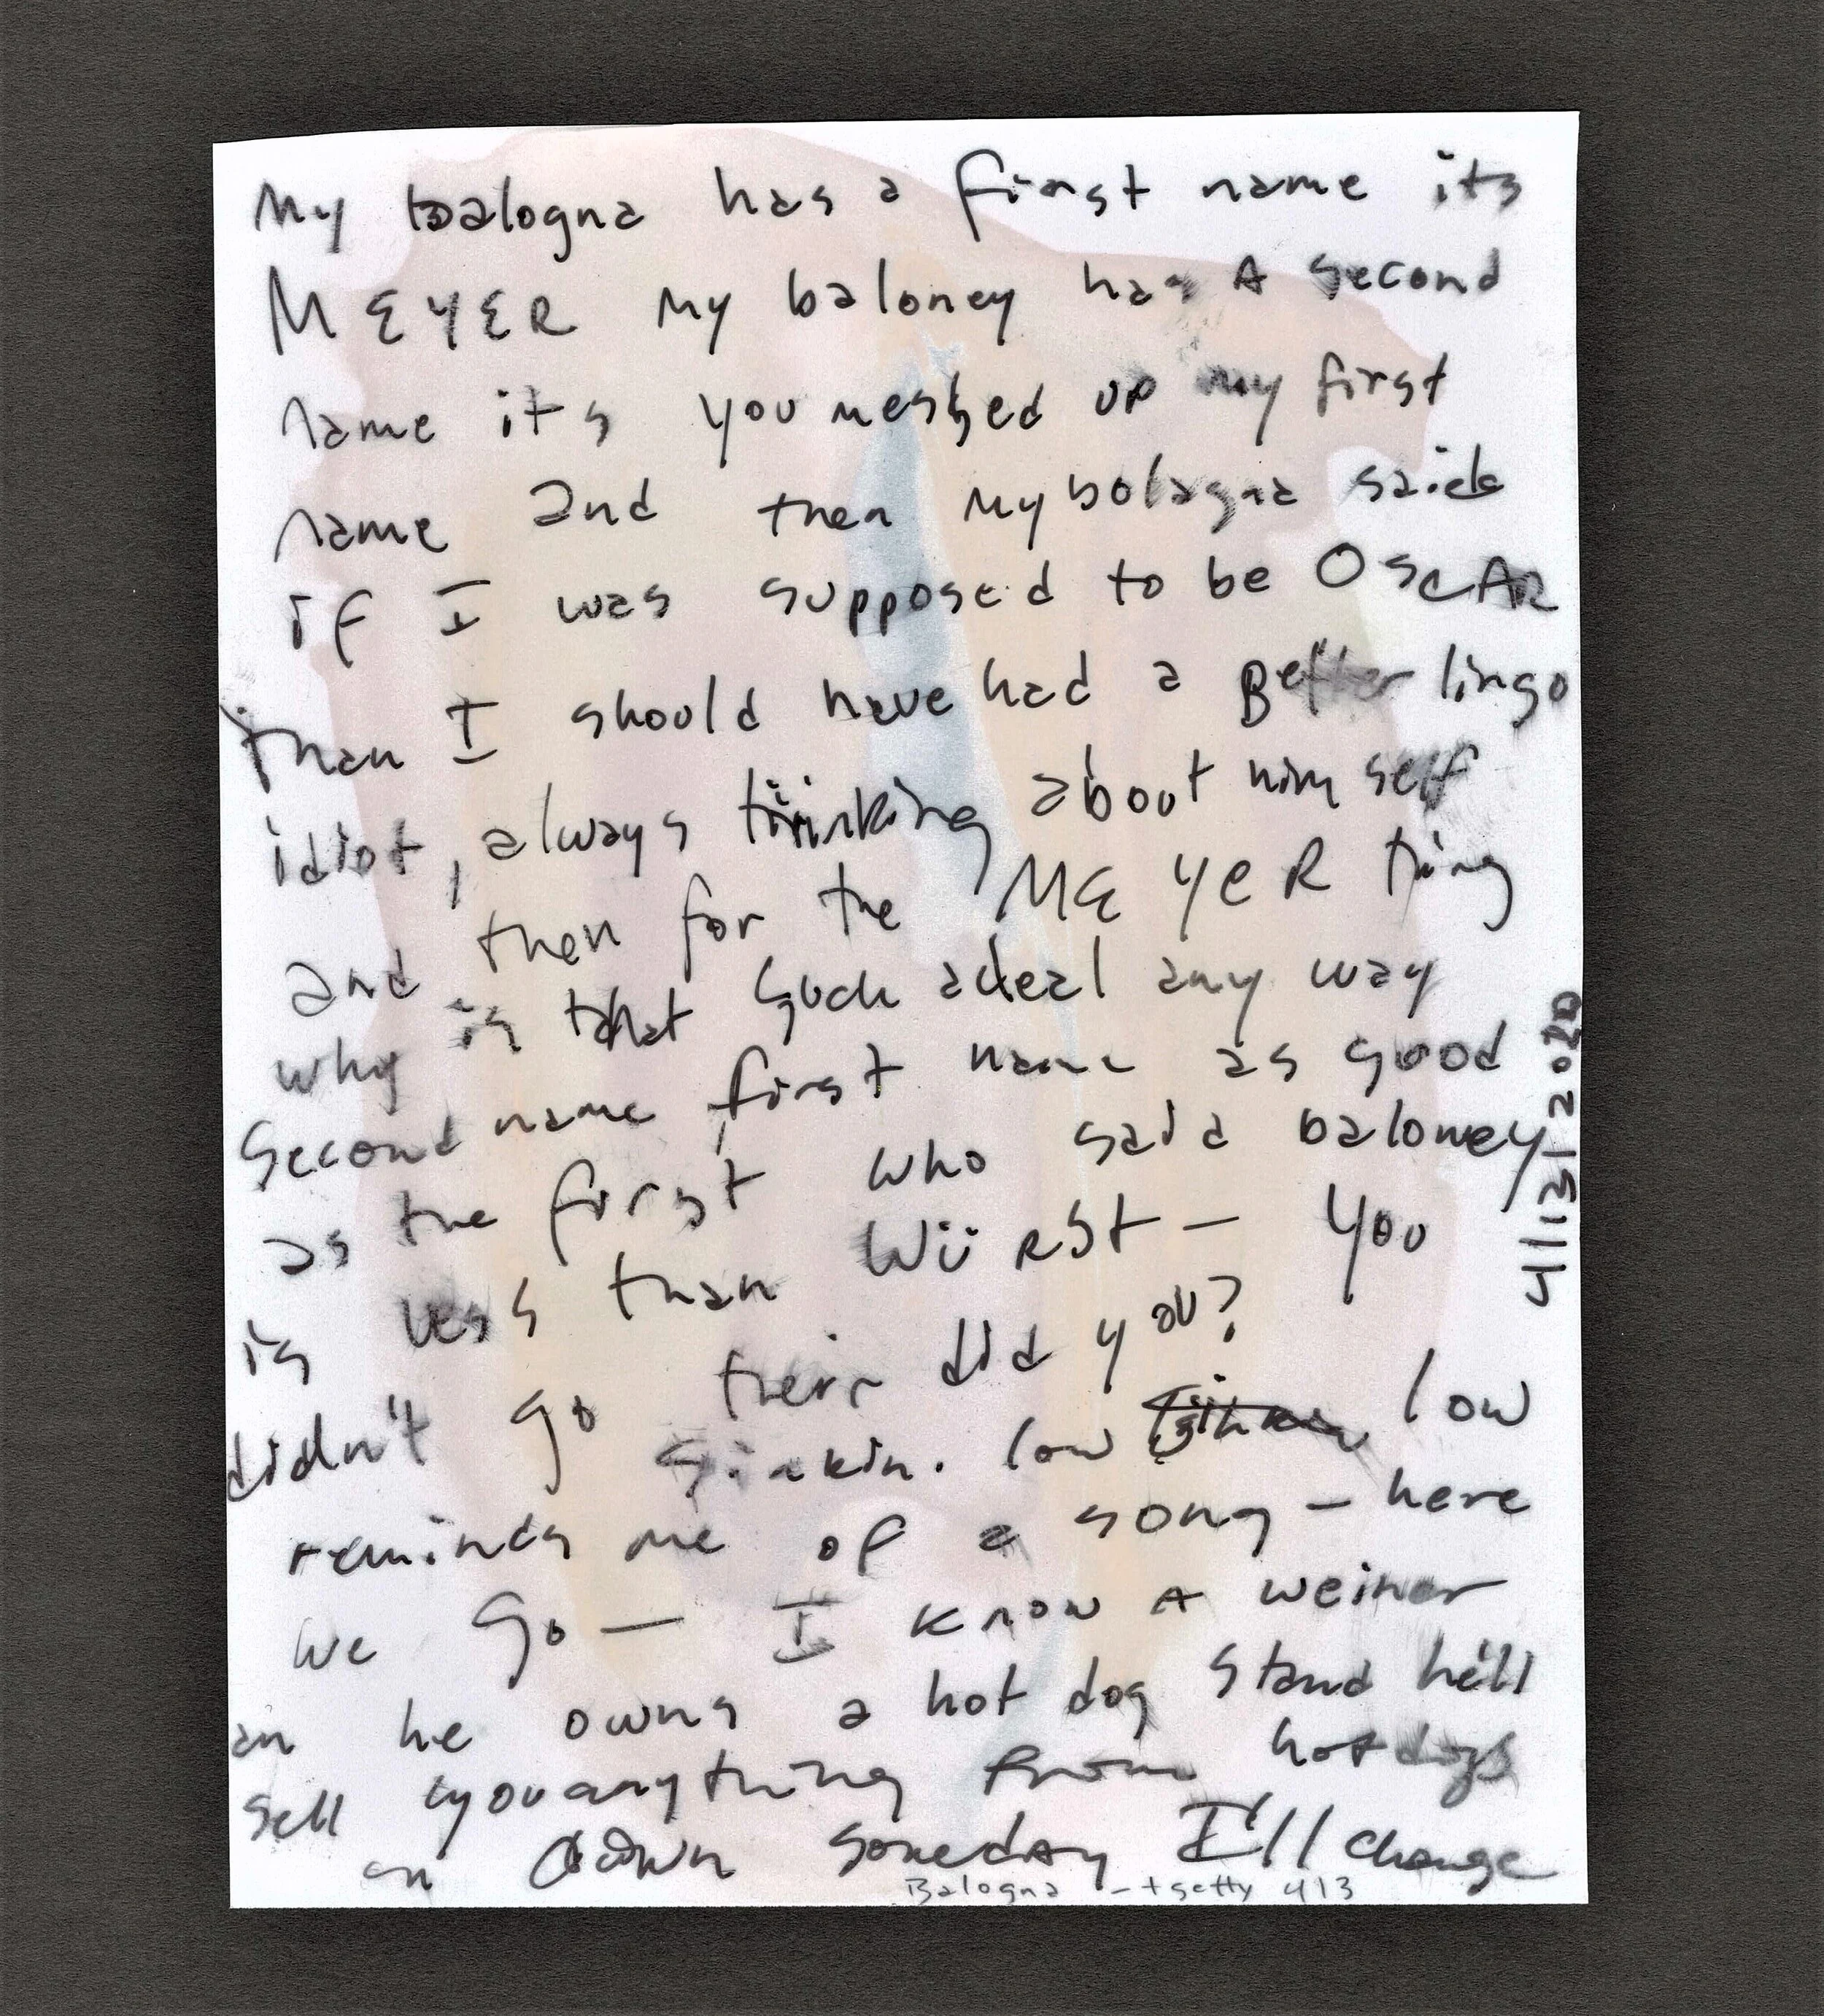 My balogna has a first name its
MEYER my baloney has A second
name its you meshed up my first
name and then my bolagna said
if I was supposed to be OSCAR
than I should have had a Better lingo
idiot, always thinking about him self
and then for the MEYER thing
why is that such a deal any way
Second name first name as good
as the first who said baloney
is less than WürSt — you
didn't go their did you?
sinkin. low low
reminds me of a song — here
we go — I know A weiner
an he owns a hot dog stand he'll
sell you anything from hotdogs
on down someday I'll change
Balogna - tsetty 413
4/13/2020